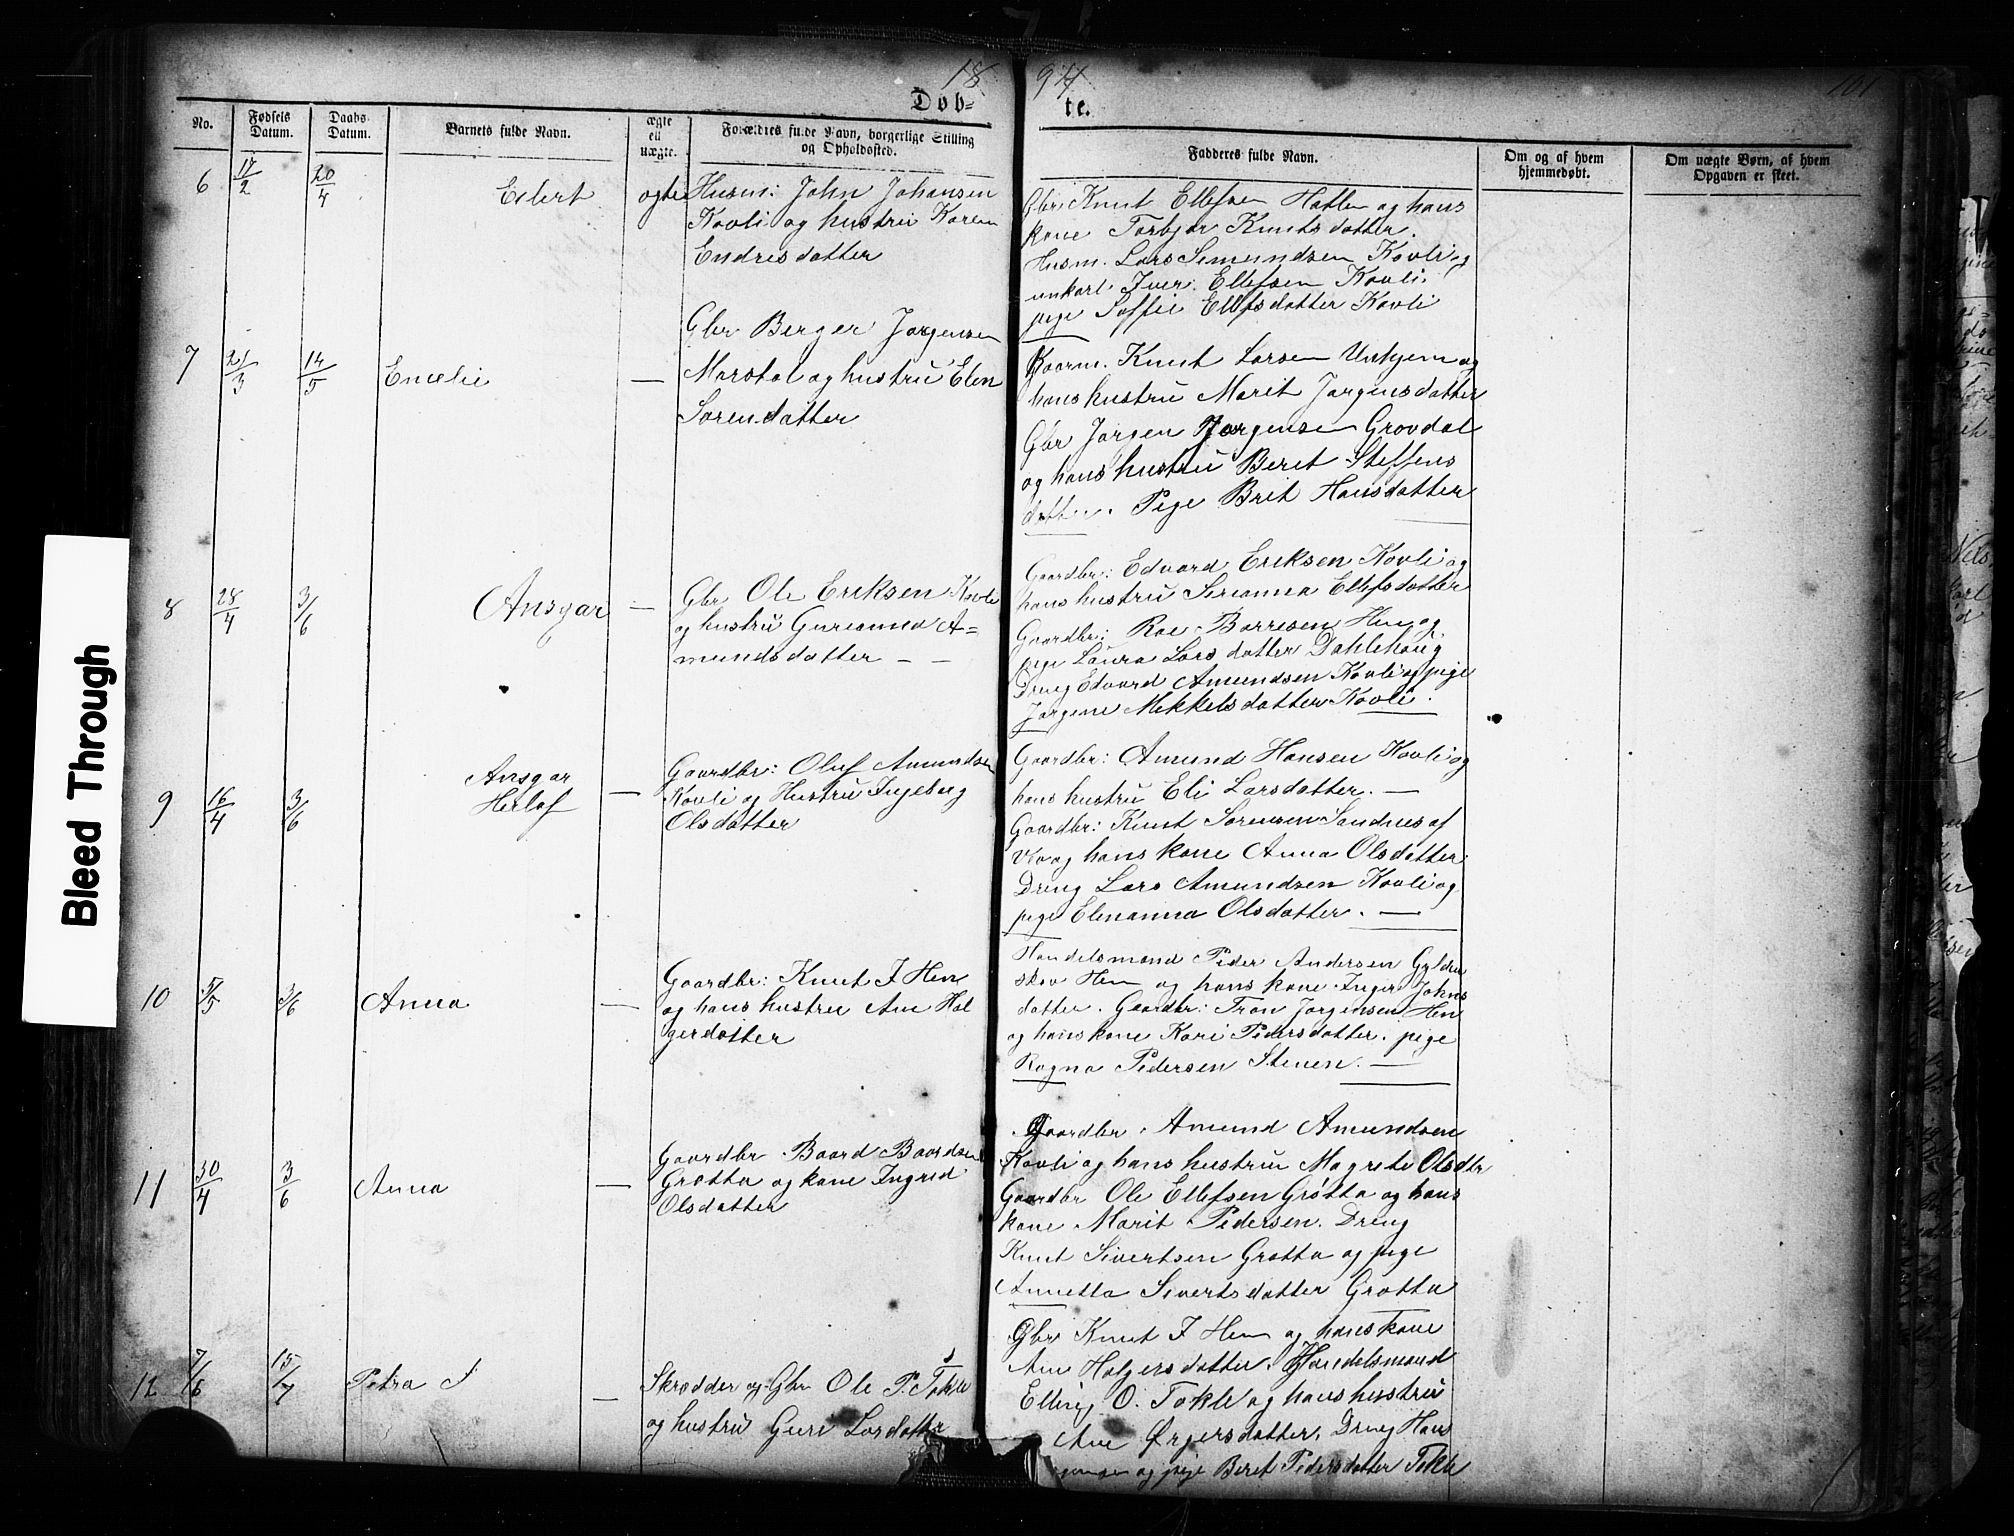 1894
101
Døb-
te.
No.
Fødsels Datum.
Daabs Datum.
Barnets fulde Navn.
ægte ell uægte.
Forældres fulde Navn, borgerlige Stilling
og Opholdssted.
Fadderes fulde Navn.
Om og af hvem
hjemmedøbt.
Om uægte Børn, af hvem
Opgaven er skeet.
6 17/2 20/4 Eilert ægte
Husm: John Johansen
Kavli og hustru Karen
Endresdatter
Gbr Knut Ellefsen Hatlen og hans
kone Torbjør Knutsdatter.
Husm. Lars Simundsen Kavli og
unkarl Iver Ellefsen Kavli.
pige Soffie Ellefsdatter Kavli
7 21/3 14/5 Emelie —
Gbr Berger Jørgensen
Marstal og hustru Elen
Sørensdatter
Gaarm. Knut Larsen Unhjem og
hans hustru Marit Jørgensdatter
Gbr Jørgen Jørgensen Grovdal
og hans hustru Beret Steffens
datter. Pige Brit Hansdatter
8 28/4 3/6 Ansgar —
Gbr Ole Eriksen Kavli
og hustru Gurianna A=
mundsdatter — —
Gaardbr: Edvard Eriksen Kavli og
hans hustru Serianna Ellefsdatter
Gaardbr: Roe Børresen Hen og
pige Laura Larsdatter Dahlehaug
Dreng Edvard Amundsen Kavli og pige
Jørgine Mikkelsdatter Kavli.
9 16/4 3/6 Ansgar
Herlof —
Gaardbr: Oluf Amundsen
Kavli og Hustru Ingeborg
Olsdatter
Gaardbr: Amund Hansen Kavli og
hans hustru Eli Larsdatter. —
Gaardbr: Knut Sørensen Sandnes af
og hans kone Anna Olsdatter.
Dreng Lars Amundsen Kavli og
pige Elenanna Olsdatter. —
10 5/5 3/6 Anna —
Gaardbr: Knut I Hen
og hans hustru Ane Hol
gersdatter
Handelsmand Peder Andersen Gylden
skov Hen og hans kone Inger Johns
datter. Gaardbr: Tron Jørgensen Hen
og hans kone Kari Pedersdatter. pige
Ragna Pedersen Stenen. —
11 30/4 3/6 Anna —
Gaardbr Baard Baardsen
Grøtta og kone Ingrid
Olsdatter
Gaardbr. Amund Amundsen
Kavli og hans hustru Magrete Olsdtr
Gaardbr Ole Ellefsen Grøtta og hans
kone Marit Pedersen. Dreng
Knut Sivertsen Grøtta og pige
Annetta Sivertsdatter Grøtta
12 7/6 15/7 Petra —
Skrædder og Gbr Ole P. Tokle
og hustru Guri Larsdatter
Gbr Knut I Hen og hans kone
Ane Holgersdatter. Handelsmand
Elling O. Tokle og hans hustru
Ane Ørgersdatter. Dreng Hans
og pige Beret Pedersdatter Tokle
Bleed Through